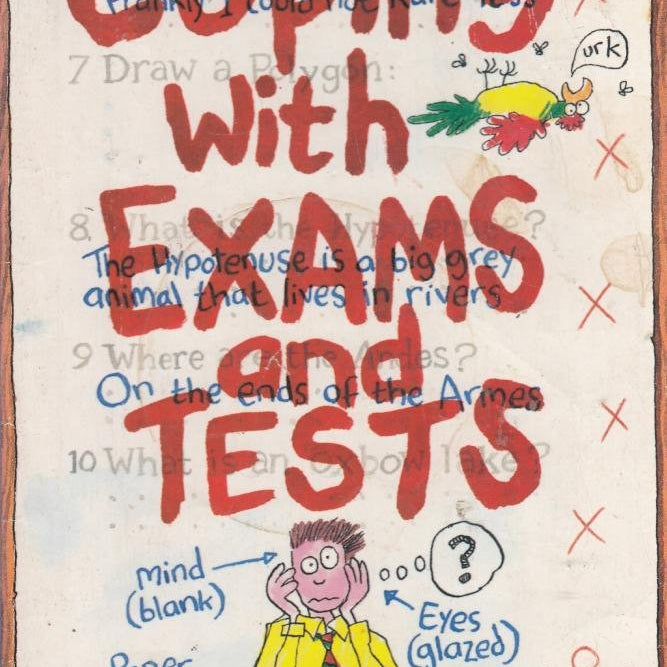 Frankly I could not kare less
Coping
7 Draw a Polygon:
urk
with
8 What is the Hypotenuse?
EXAMS
The Hypotenuse is a big grey
animal that lives in rivers
and
9 Where are the Andes?
On the ends of the Armes
TESTS
10 What is an Oxbow lake?
?
mind
(blank)
Eyes
(glazed)
Paper